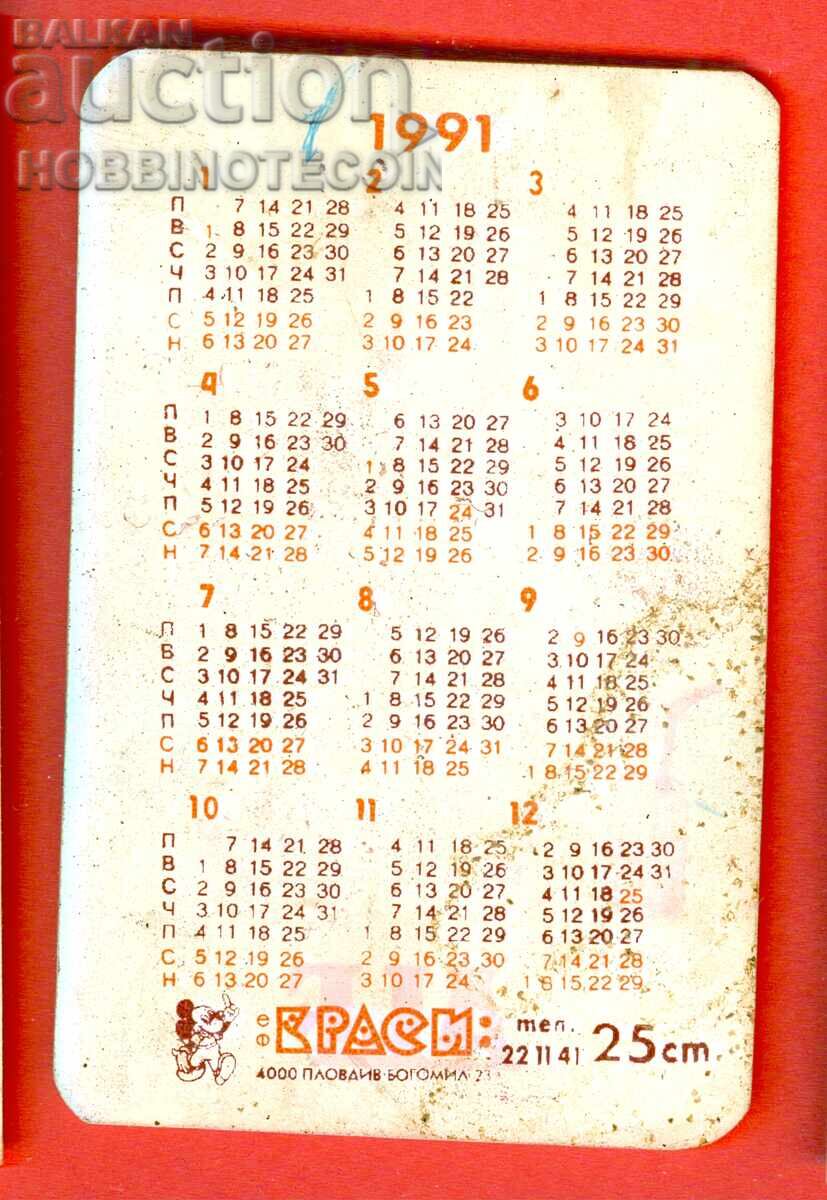 BALKAN
auction
HOBBINOTECOIN
1991
1 2 3
П 7 14 21 28 4 11 18 25 4 11 18 25
В 1 8 15 22 29 5 12 19 26 5 12 19 26
С 2 9 16 23 30 6 13 20 27 6 13 20 27
Ч 3 10 17 24 31 7 14 21 28 7 14 21 28
П 4 11 18 25 1 8 15 22 1 8 15 22 29
С 5 12 19 26 2 9 16 23 2 9 16 23 30
Н 6 13 20 27 3 10 17 24 3 10 17 24 31
4 5 6
П 1 8 15 22 29 6 13 20 27 3 10 17 24
В 2 9 16 23 30 7 14 21 28 4 11 18 25
С 3 10 17 24 1 8 15 22 29 5 12 19 26
Ч 4 11 18 25 2 9 16 23 30 6 13 20 27
П 5 12 19 26 3 10 17 24 31 7 14 21 28
С 6 13 20 27 4 11 18 25 1 8 15 22 29
Н 7 14 21 28 5 12 19 26 2 9 16 23 30
7 8 9
П 1 8 15 22 29 5 12 19 26 2 9 16 23 30
В 2 9 16 23 30 6 13 20 27 3 10 17 24
С 3 10 17 24 31 7 14 21 28 4 11 18 25
Ч 4 11 18 25 1 8 15 22 29 5 12 19 26
П 5 12 19 26 2 9 16 23 30 6 13 20 27
С 6 13 20 27 3 10 17 24 31 7 14 21 28
Н 7 14 21 28 4 11 18 25 1 8 15 22 29
10 11 12
П 7 14 21 28 4 11 18 25 2 9 16 23 30
В 1 8 15 22 29 5 12 19 26 3 10 17 24 31
С 2 9 16 23 30 6 13 20 27 4 11 18 25
Ч 3 10 17 24 31 7 14 21 28 5 12 19 26
П 4 11 18 25 1 8 15 22 29 6 13 20 27
С 5 12 19 26 2 9 16 23 30 7 14 21 28
Н 6 13 20 27 3 10 17 24 1 8 15 22 29
ФЕ КРАСИ: тел. 22 11 41 25 cm.
4000 ПЛОВДИВ·БОГОМИЛ 23